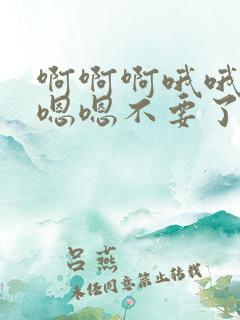 啊啊啊哦哦
嗯嗯不要了
吕燕
未经同意禁止转载